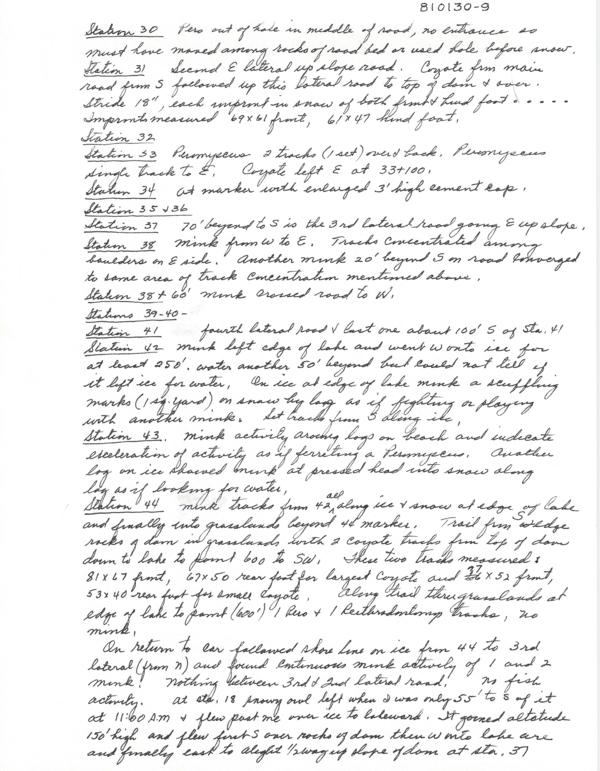 810130-9
Station 30 Pero out of hole in middle of road, no entrance so
must have moved among rocks of road bed or used hole before snow.
Station 31 Second E lateral up slope road. Coyote frm main
road from S followed up this lateral road to top of dam & over.
Stride 18", each imprint in snow of both front & hind foot.....
Imprints measured 69x61 front, 61x47 hind foot.
Station 32
Station 33 Peromyscus 2 tracks (1 set) over & back. Peromyscus
single track to E. Coyote left E at 33+100.
Station 34 At marker with enlarged 3' high cement cap.
Station 35 & 36
Station 37 70' beyond to S is the 3rd lateral road going E up slope.
Station 38 Mink from W to E. Tracks concentrated among
boulders on E side. Another mink 20' beyond S on road converged
to same area of track concentration mentioned above.
Station 38 + 60' Mink crossed road to W.
Stations 39-40-
Station 41 fourth lateral road & last one about 100' S of Sta. 41
Station 42 Mink left edge of lake and went W onto ice for
at least 250'. water another 50' beyond but could not tell if
it left ice for water. On ice at edge of lake mink a scuffling
marks (1 sq. yard) on snow by log as if fighting or playing
with another mink. Set tracks from S along ice.
Station 43. Mink activity around logs on beach and indicate
esceleration of activity as if ferreting a Peromyscus. Another
log on ice showed mink at pressed head into snow along
log as if looking for water.
Station 44 Mink tracks from 42, all along ice & snow at edge of lake
and finally into grasslands beyond 44 marker. Trail from S edge
rocks of dam in grasslands with 2 Coyote tracks from top of dam
down to lake to point 600 to SW. These two tracks measured:
81x67 front, 67x50 rear foot for largest Coyote and 57 x 52 front,
53x40 rear foot for small Coyote. Along trail thru grasslands at
edge of lake to point (600') 1 Pero & 1 tracks, no
mink.
On return to car followed shore line on ice from 44 to 3rd
lateral (from N) and found continuous mink activity of 1 and 2
mink. Nothing between 3rd & 2nd lateral road. No fish
activity. At sta. 18 snowy owl left when I was only 55' to S of it
at 11:00 AM & flew past me over ice to lakeward. It gained altitude
150' high and flew first S over rocks of dam then W onto lake ice
and finally east to alight 1/2 way up slope of dam at sta. 37